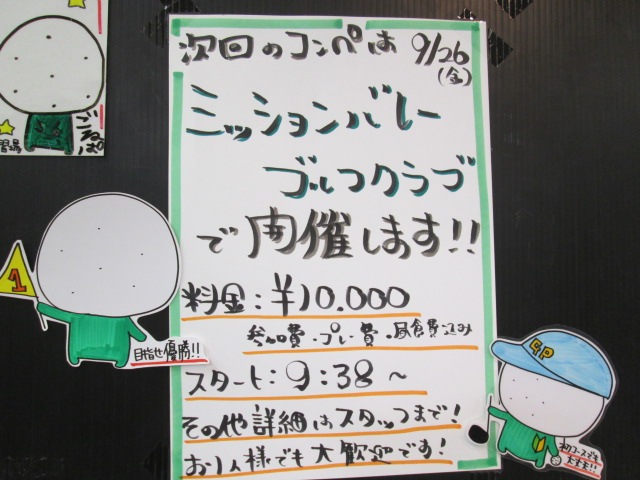 次回のコンペは 9/26
(金)
ミッションバレー
ゴルフクラブ
で開催します!!
料金:¥10.000
参加費・プレー費・昼食費込み
スタート:9:38～
その他詳細はスタッフまで!
お1人様でも大歓迎です!
1
目指せ優勝!!
GP
初コースでも
大丈夫!!
ごるぱ
習場